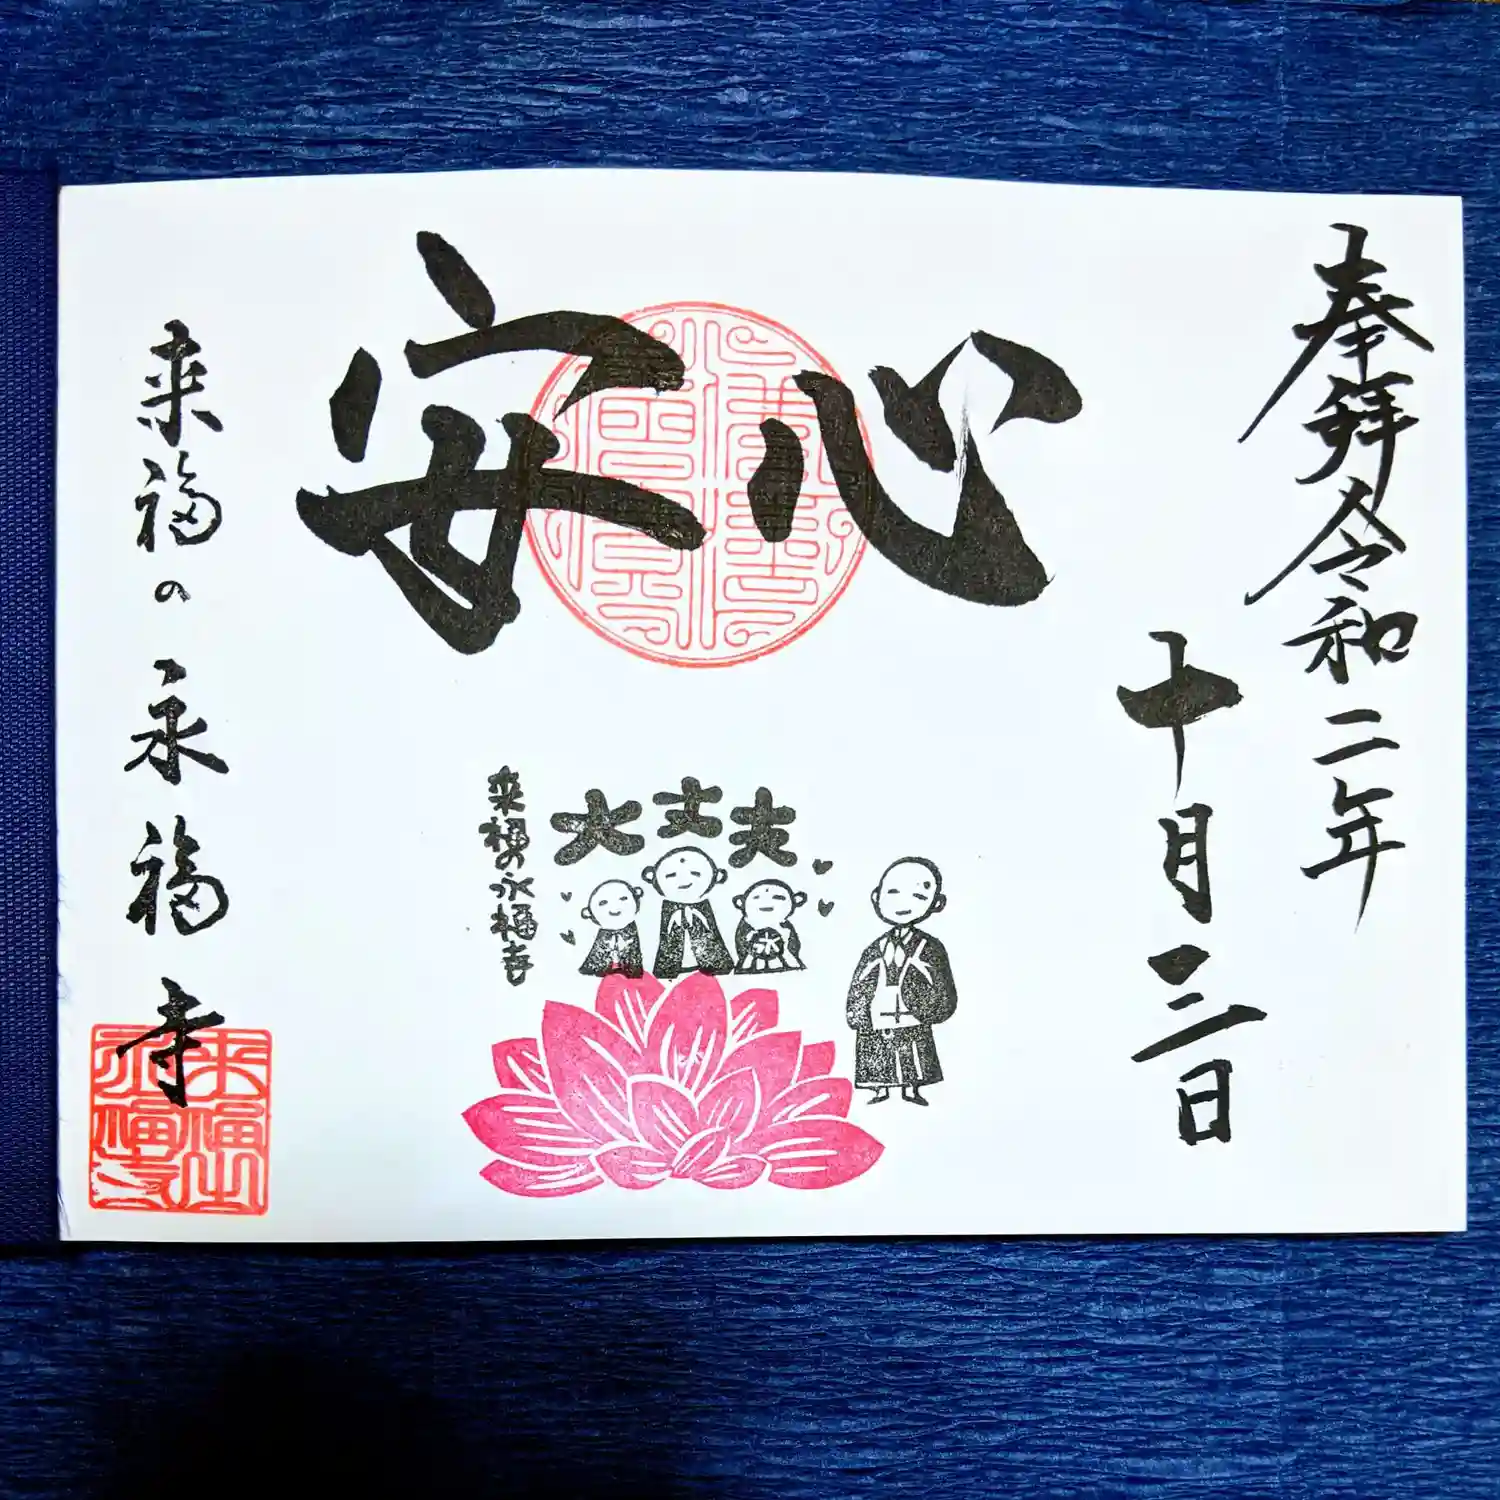 奉拝令和二年
十月三日
安心
大丈夫
来福の永福寺
来福の永福寺
来福山
永福寺